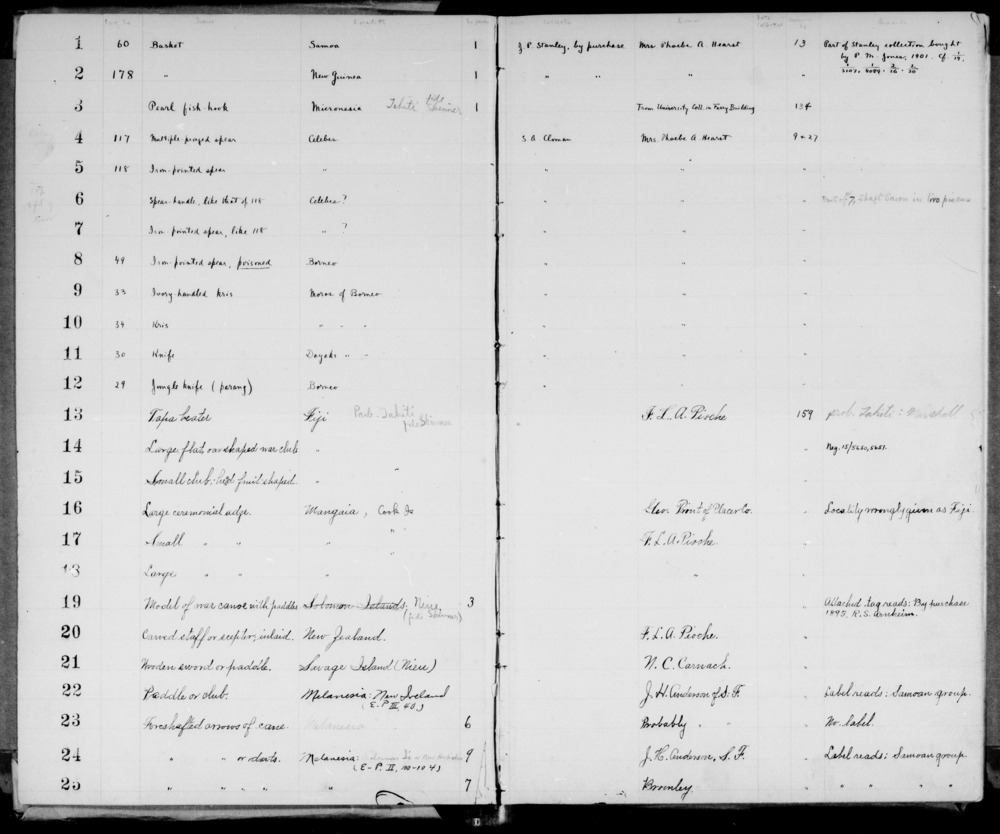 1 60 Basket Samoa 1 J. P. Stanley, by purchase Mrs Phoebe A Hearst 13 Part of Stanley collection bought
by P. M. Jones, 1901. Cf
2 178 " New Guinea 1 " " " "
3 Pearl fish-hook Micronesia Tahiti fide Skinner 1 From University Coll. in Ferry Building 134
4 117 Multiple-pronged spear Celebes S. A. Cloman Mrs. Phoebe A Hearst 9+27
5 118 Iron-pointed spear " " " "
6 Spear-handle, like that of 118 Celebes? " " " Part of 7, shaft broken in two pieces
7 Iron-pointed spear, like 118 " ? " " "
8 49 Iron-pointed spear, poisoned Borneo " " "
9 33 Ivory-handled kris Moros of Borneo " " "
10 34 Kris " " " " " "
11 30 Knife Dayaks " " " " "
12 29 Jungle knife (parang) Borneo " " "
13 Tapa beater Fiji Prob. Tahiti F. L. A. Pioche 159 prob. Tahiti: Marshall
fide Skinner
14 Large flat oar shaped war club " Neg. 15/5650, 5651.
15 Small club; fruit shaped. " "
16 Large ceremonial adge. Mangaia, Cook Is Geo. Prout of Placer Co. " Locality wrongly given as Fiji.
17 Small " " " " F. L. A. Pioche. "
18 Large " " " " "
19 Model of war canoe with paddles Solomon Islands; Niue 3 " Attached tag reads: By purchase
(fide Skinner) 1895. R. S. Arnheim.
20 Carved staff or scepter; inlaid. New Zealand. F. L. A. Pioche. "
21 Wooden sword or paddle. Savage Island (Niue) N. C. Carnach. "
22 Paddle or club. Melanesia: New Ireland J. H. Anderson of S. F. " Label reads: Samoan group.
(E-P III, 40,)
23 Foreshafted arrows of cane. Melanesia 6 Probably " " " No. label.
24 " " or darts. Melanesia: 9 J. H. Anderson, S. F. " Label reads: Samoan group.
(E-P. II, 100-104)
25 " " " " " 7 Bromley. " " " " "